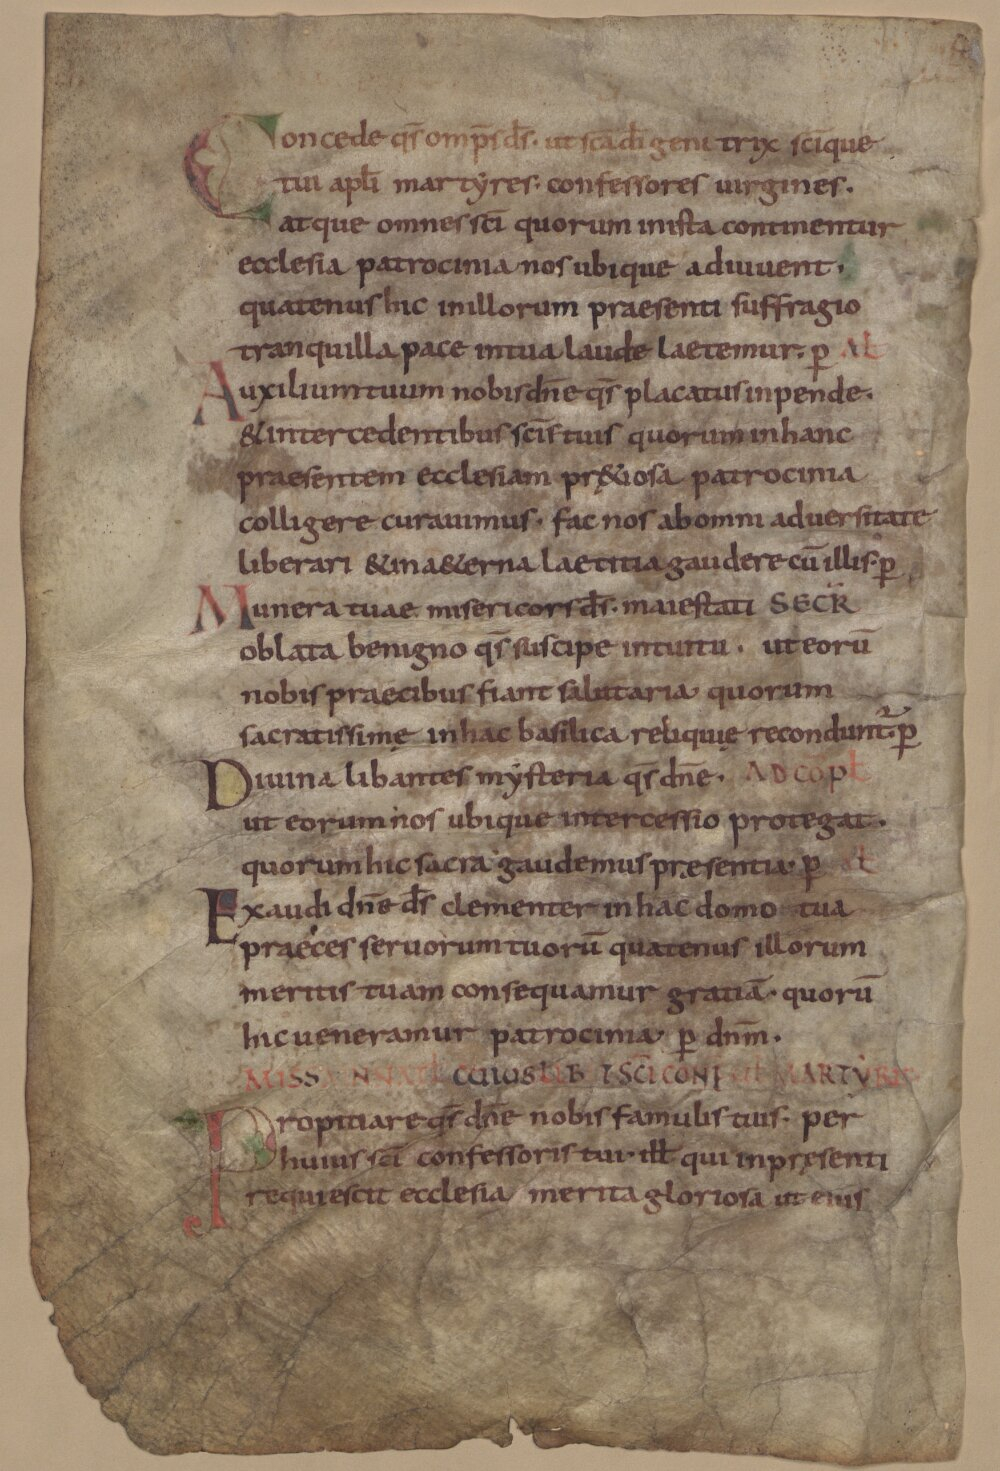 Concede q̄s omp̄s d̄s. ut scā dī genitrix scīque
tui aplī martẏres. confessores uirgines.
atque omnes scī quorum inista continentur
ecclesia patrocinia nos ubique adiuuent.
quatenus hic inillorum praesenti suffragio
tranquilla pace intua laude laetemur. ꝑ AL
Auxilium tuum nobis dn̄e q̄s placatus inpende.
& intercedentibus scīs tuis quorum inhanc
praesentem ecclesiam prę&iosa patrocinia
colligere curauimus. fac nos abomni aduersitate
liberari &ina&erna laetitia gaudere cū illis. ꝑ
Munera tuae misericors d̄s. maiestati SECR
oblata benigno q̄s suscipe intuitu. ut eorū
nobis praecibus fiant salutaria quorum
sacratissimę inhac basilica reliquię reconduntur. ꝑ
Diuina libantes mẏsteria q̄s dn̄e. AD CŌPL
ut eorum nos ubique intercessio protegat.
quorum hic sacra gaudemus pręsentia. ꝑ AL
Exaudi dn̄e d̄s clementer inhac domo tua
praeces seruorum tuorū quatenus illorum
meritis tuam consequamur gratiā. quorū
hic ueneramur patrocinia. ꝑ dnm̄.
MISS SCĪ CONF MARTẎRIS
Propitiare q̄s dn̄e nobis famulis tuis. per
huius scī confessoris tui. ill̄ qui inpręsenti
requiescit ecclesia merita gloriosa ut eius